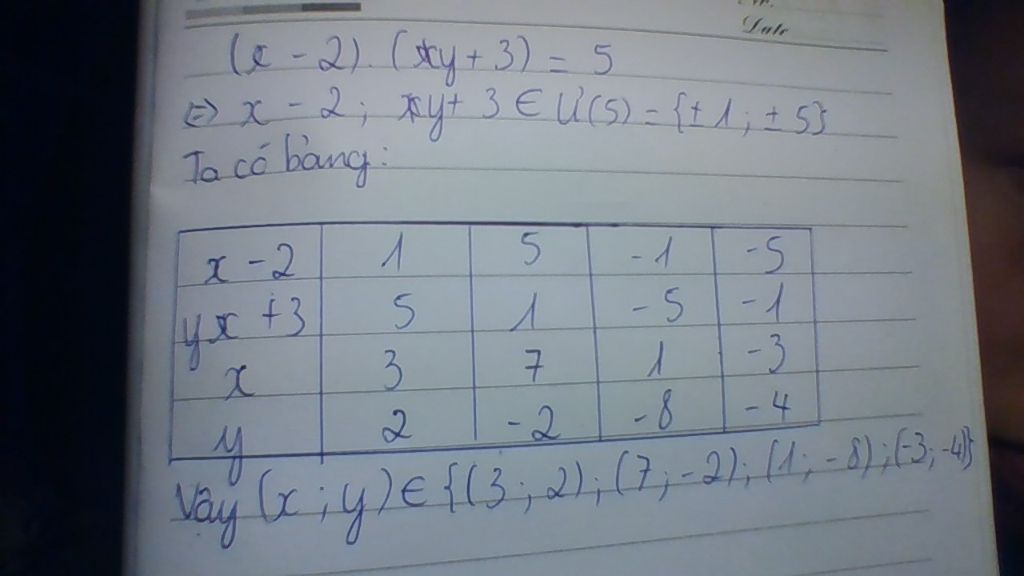 Date
(x - 2) . (xy + 3) = 5
<=> x - 2 ; xy + 3 ∈ Ư(5) = {±1 ; ±5}
Ta có bảng:
x - 2 1 5 -1 -5
yx + 3 5 1 -5 -1
x 3 7 1 -3
y 2 -2 -8 -4
Vậy (x ; y) ∈ {(3 ; 2) ; (7 ; -2) ; (1 ; -8) ; (-3 ; -4)}